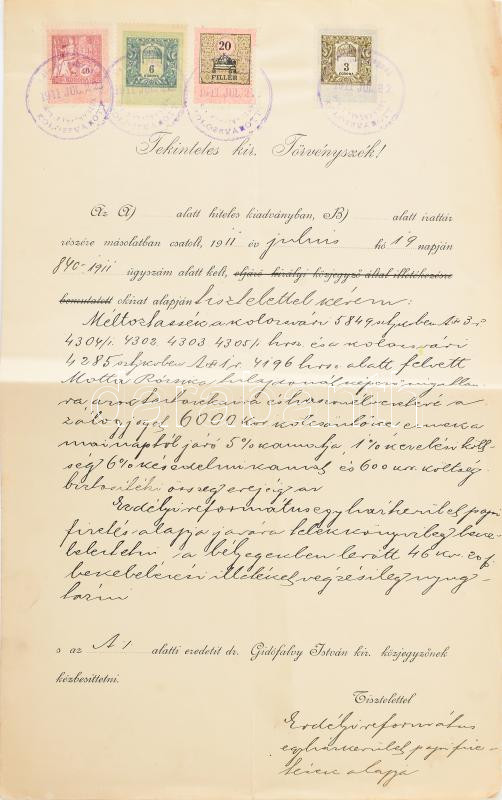 40
6
KORONA
20
FILLÉR
3
KORONA
1911 JUL 22
KOLOZSVÁROTT
Tekintetes kir. Törvényszék!
Az A) alatt hiteles kiadványban, B) alatt irattár
részére másolatban csatolt, 1911 év julius hó 19 napján
840-1911 ügyszám alatt kelt, eljáró királyi közjegyző által illetékezésre
bemutatott okirat alapján tisztelettel kérem:
Méltóztassék a kolozsvári 5849 sztjkvben A+3 r
4304/1. 4302. 4303 4305/1 hrsz. és a kolozsvári
4285 sztjkvben A+1 r. 4196 hrsz. alatt felvett
Rózsika
a
6000 kor kölcsönőke s ennek a
mai naptól járó 5% kamatja, 1% kezelési költ-
ség 6% késedelmi kamat és 600 kor. költség
biztositéki összeg erejéig az
Erdélyi református egyházkerület papi
fizetés alapja javára telekkönyvileg beke-
beleztetni a bélyegekben lerótt 46 kor. 20 f.
bekebelezési illetéket végzésileg nyug-
tázni
s az A1 alatti eredetit dr. Gidófalvy István kir. közjegyzőnek
kézbesittetni.
Tisztelettel
Erdélyi református
egyházkerület papi fize-
tések alapja